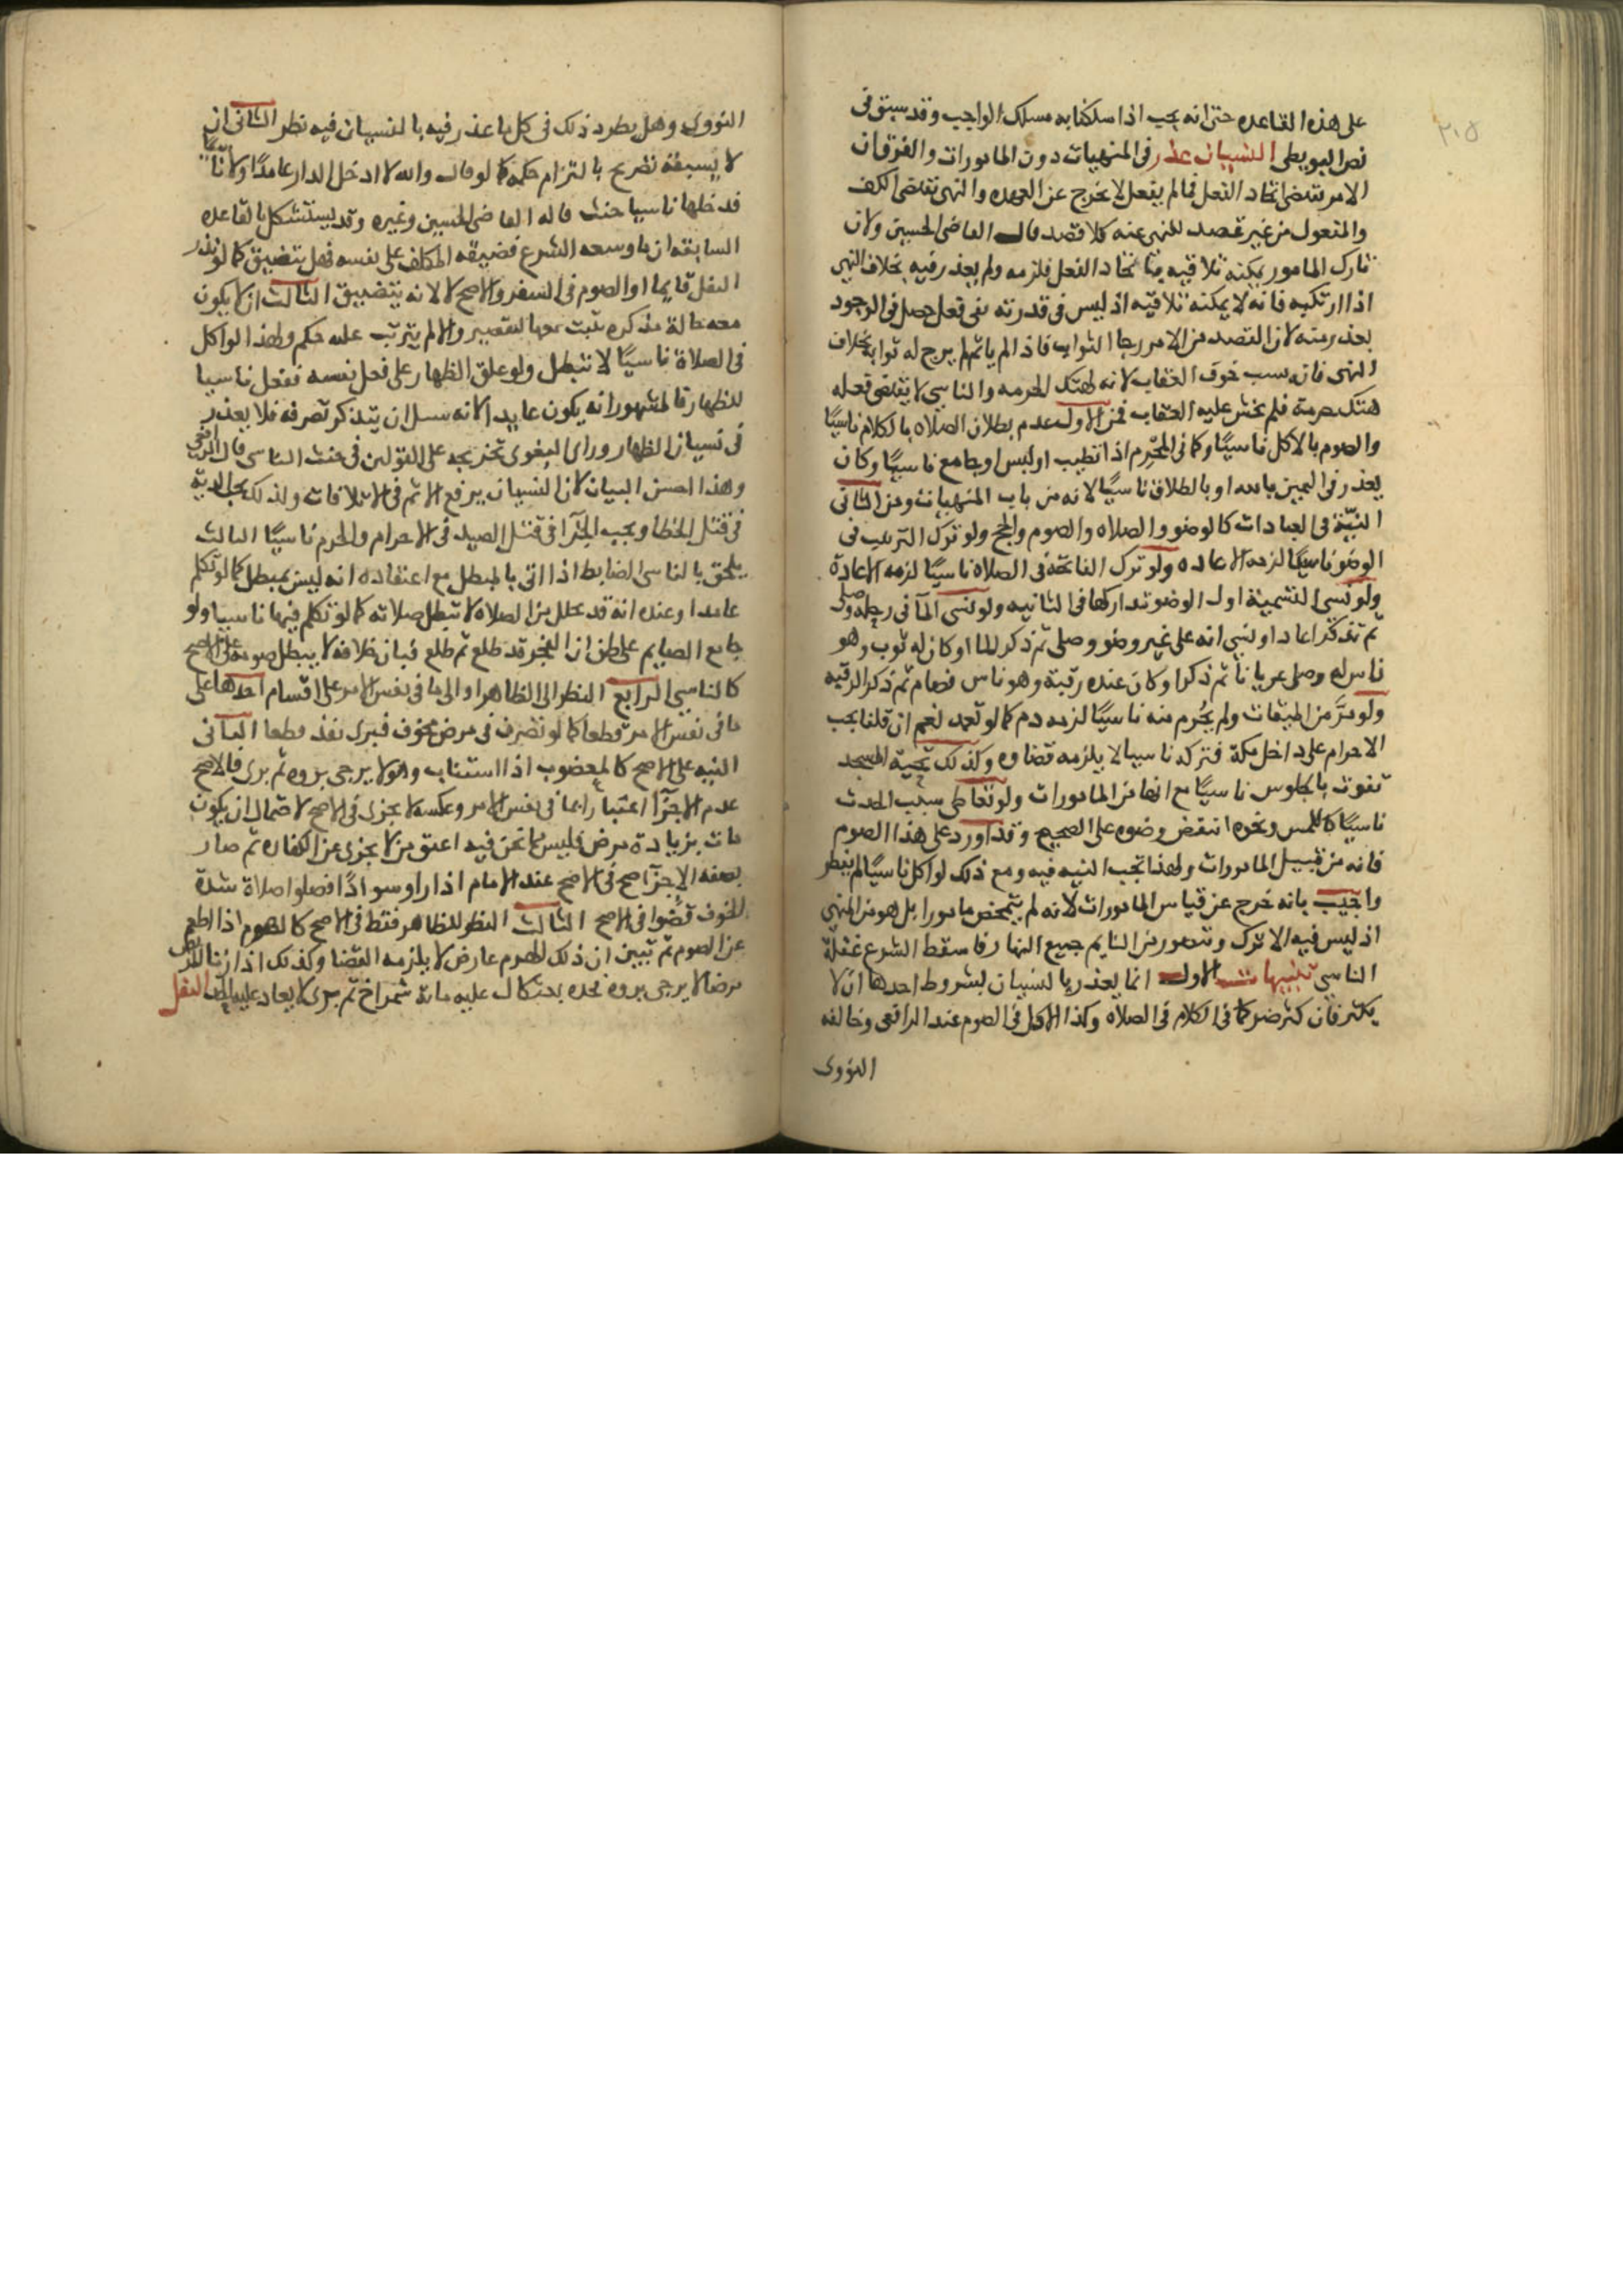 ٢٠٥
على هذه القاعده حتى انه يجب اذا سلكنا به مسلك الواجب وقد سبق في
نص البويطي النسيان عذر في المنهيات دون المامورات والفرق ان
الامر يقتضي ايجاد الفعل فمالم يفعل لا يخرج عن العهده والنهي يقتضي الكف
والمفعول من غير قصد للنهي عنه كلا قصد قال القاضي الحسين ولان
تارك المامور يمكنه تلافيه بايجاد الفعل فلزمه ولم يعذر فيه بخلاف النهي
اذا ارتكبه فانه لا يمكنه تلافيه اذ ليس في قدرته نفي فعل حصل في الوجود
يعذر منه لان القصد من الامر رجا الثواب فاذا لم ياتمر لم يرج له ثوابه بخلاف
النهي فان سبب خوف العقاب لانه لهتك الحرمه والناسي لا يقتضي فعله
هتك حرمة فلم يخش عليه العقاب فمن الاول عدم بطلان الصلاه بالكلام ناسيًا
والصوم بالاكل ناسيًا وكما في المحرم اذا تطيب او لبس او جامع ناسيًا وكان
يعذر في اليمين بالله او بالطلاق ناسيًا لانه من باب المنهيات ومن الثاني
النيّة في العبادات كالوضوء والصلاه والصوم والحج ولو ترك الترتيب في
الوضو ناسيًا لزمه الاعاده ولو ترك الفاتحة في الصلاة ناسيًا لزمه الاعادة
ولو نسي التسمية اول الوضو تداركها في اثنائيه ولو نسي المآ في رحله وصلى
ثم تذكر اعاد او نسي انه على غير وضو وصلى ثم ذكر الما او كان له ثوب وهو
ناس له وصلى عريانا ثم ذكر او كان عنده رقبة وهو ناس فصام ثم ذكر الرقبه
ولو مرّ من الميقات ولم يحُرم منه ناسيًا لزمه دم كما لو تعمد نعم ان قلنا يجب
الاحرام على داخل مكة فتركه ناسيا لا يلزمه قضاوه وكذلك تحية المسجد
تفوت بالجلوس ناسيًا مع انها من المامورات ولو تعاطى سبب الحدث
ناسيًا كاللمس ونحوه انتقض وضوه على الصحيح وقد اورد على هذا الصوم
فانه من قبيل المامورات ولهذا تجب النيه فيه ومع ذلك لو اكل ناسيًا لم يفطر
واجيب بانه خرج عن قياس المامورات لانه لم يتمحض مامورا بل هو من المنهي
اذ ليس فيه الا ترك ويتصور من النايم جميع النهار فاسقط الشرع غفلة
الناسي تنبيهات الاول انما يعذر بالنسيان بشروط احدها ان لا
يكثر فان كثر ضر كما في الكلام في الصلاه وكذا الاكل في الصوم عند الرافعي وخالفه
النووي
النووي وهل يطرد ذلك في كل ما عذر فيه بالنسيان فيه نظر الثاني ان
لا يسبقه تصريح بالتزام حكمه كما لو قال والله لا ادخل الدار عامدًا ولا ناسيًا
فدخلها ناسيا حنث قاله القاضي الحسين وغيره وقد يستشكل بالقاعده
السابقه ان ما وسعه الشرع فضيقه المكلف على نفسه فهل يتضيق كما لو نذر
النفل قايما او الصوم في السفر والاصح لا لانه يتضييق الثالث ان لا يكون
معه حالة مذكره ينسب معها لتقصير والا لم يترتب عليه حكم ولهذا لو اكل
في الصلاة ناسيًا لا تبطل ولو علق الظهار على فعل نفسه ففعل ناسيا
للظهار فالمشهور انه يكون عايدا لانه بسبيل ان يتذكر تصرفه فلا يعذر
في نسيان الظهار وراى البغوى تخريجه على القولين في حنث الناسي قال الرافعي
وهذا احسن البيان لان النسيان يرفع الاثم في الاتلافات ولذلك يجب الدية
في قتل الخطا ويجب الجزآ في قتل الصيد في الاحرام والحرم ناسيًا الثالث
يلحق بالناسي الضابط اذا اتى بالمبطل مع اعتقاده انه ليس بمبطل كما لو تكلم
عامدا وعنده انه قد تحلل من الصلاه لا تبطل صلاته كما لو تكلم فيها ناسيا ولو
جامع الصايم على ظن ان الفجر قد طلع ثم طلع فبان خلافه لا يبطل صومه على الاصح
كالناسي الرابع النظر الى الظاهر او الى ما في نفس الامر على اقسام احدها على
ما في نفس الامر قطعا كما لو تصرف في مرض مخوف فبرى نفذ قطعا الثاني
النيه على الاصح كالمعضوب اذا استناب وهو لا يرجى بروه ثم برى فالاصح
عدم الاجزآ اعتبارا بما في نفس الامر وعكسه لا يجزى في الاصح لاحتمال ان يكون
مات بزيادة مرض فليس مما نحن فيه اعتق من لا يجزى عن الكفاره ثم صار
بصفه الاجزآ صح في الاصح عند الامام اذا راوا سوادًا فصلوا صلاة شدة
الخوف قضوا في الاصح الثالث النظر للظاهر فقط في الاصح كالهرم اذا اطعم
عن الصوم ثم تبين ان ذلك الهرم عارض لا يلزمه القضا وكذلك اذا زنا المريض
مرضا لا يرجى بروه نحده بعثكال عليه ماية شمراخ ثم برى لا يعاد عليه الحد النفل